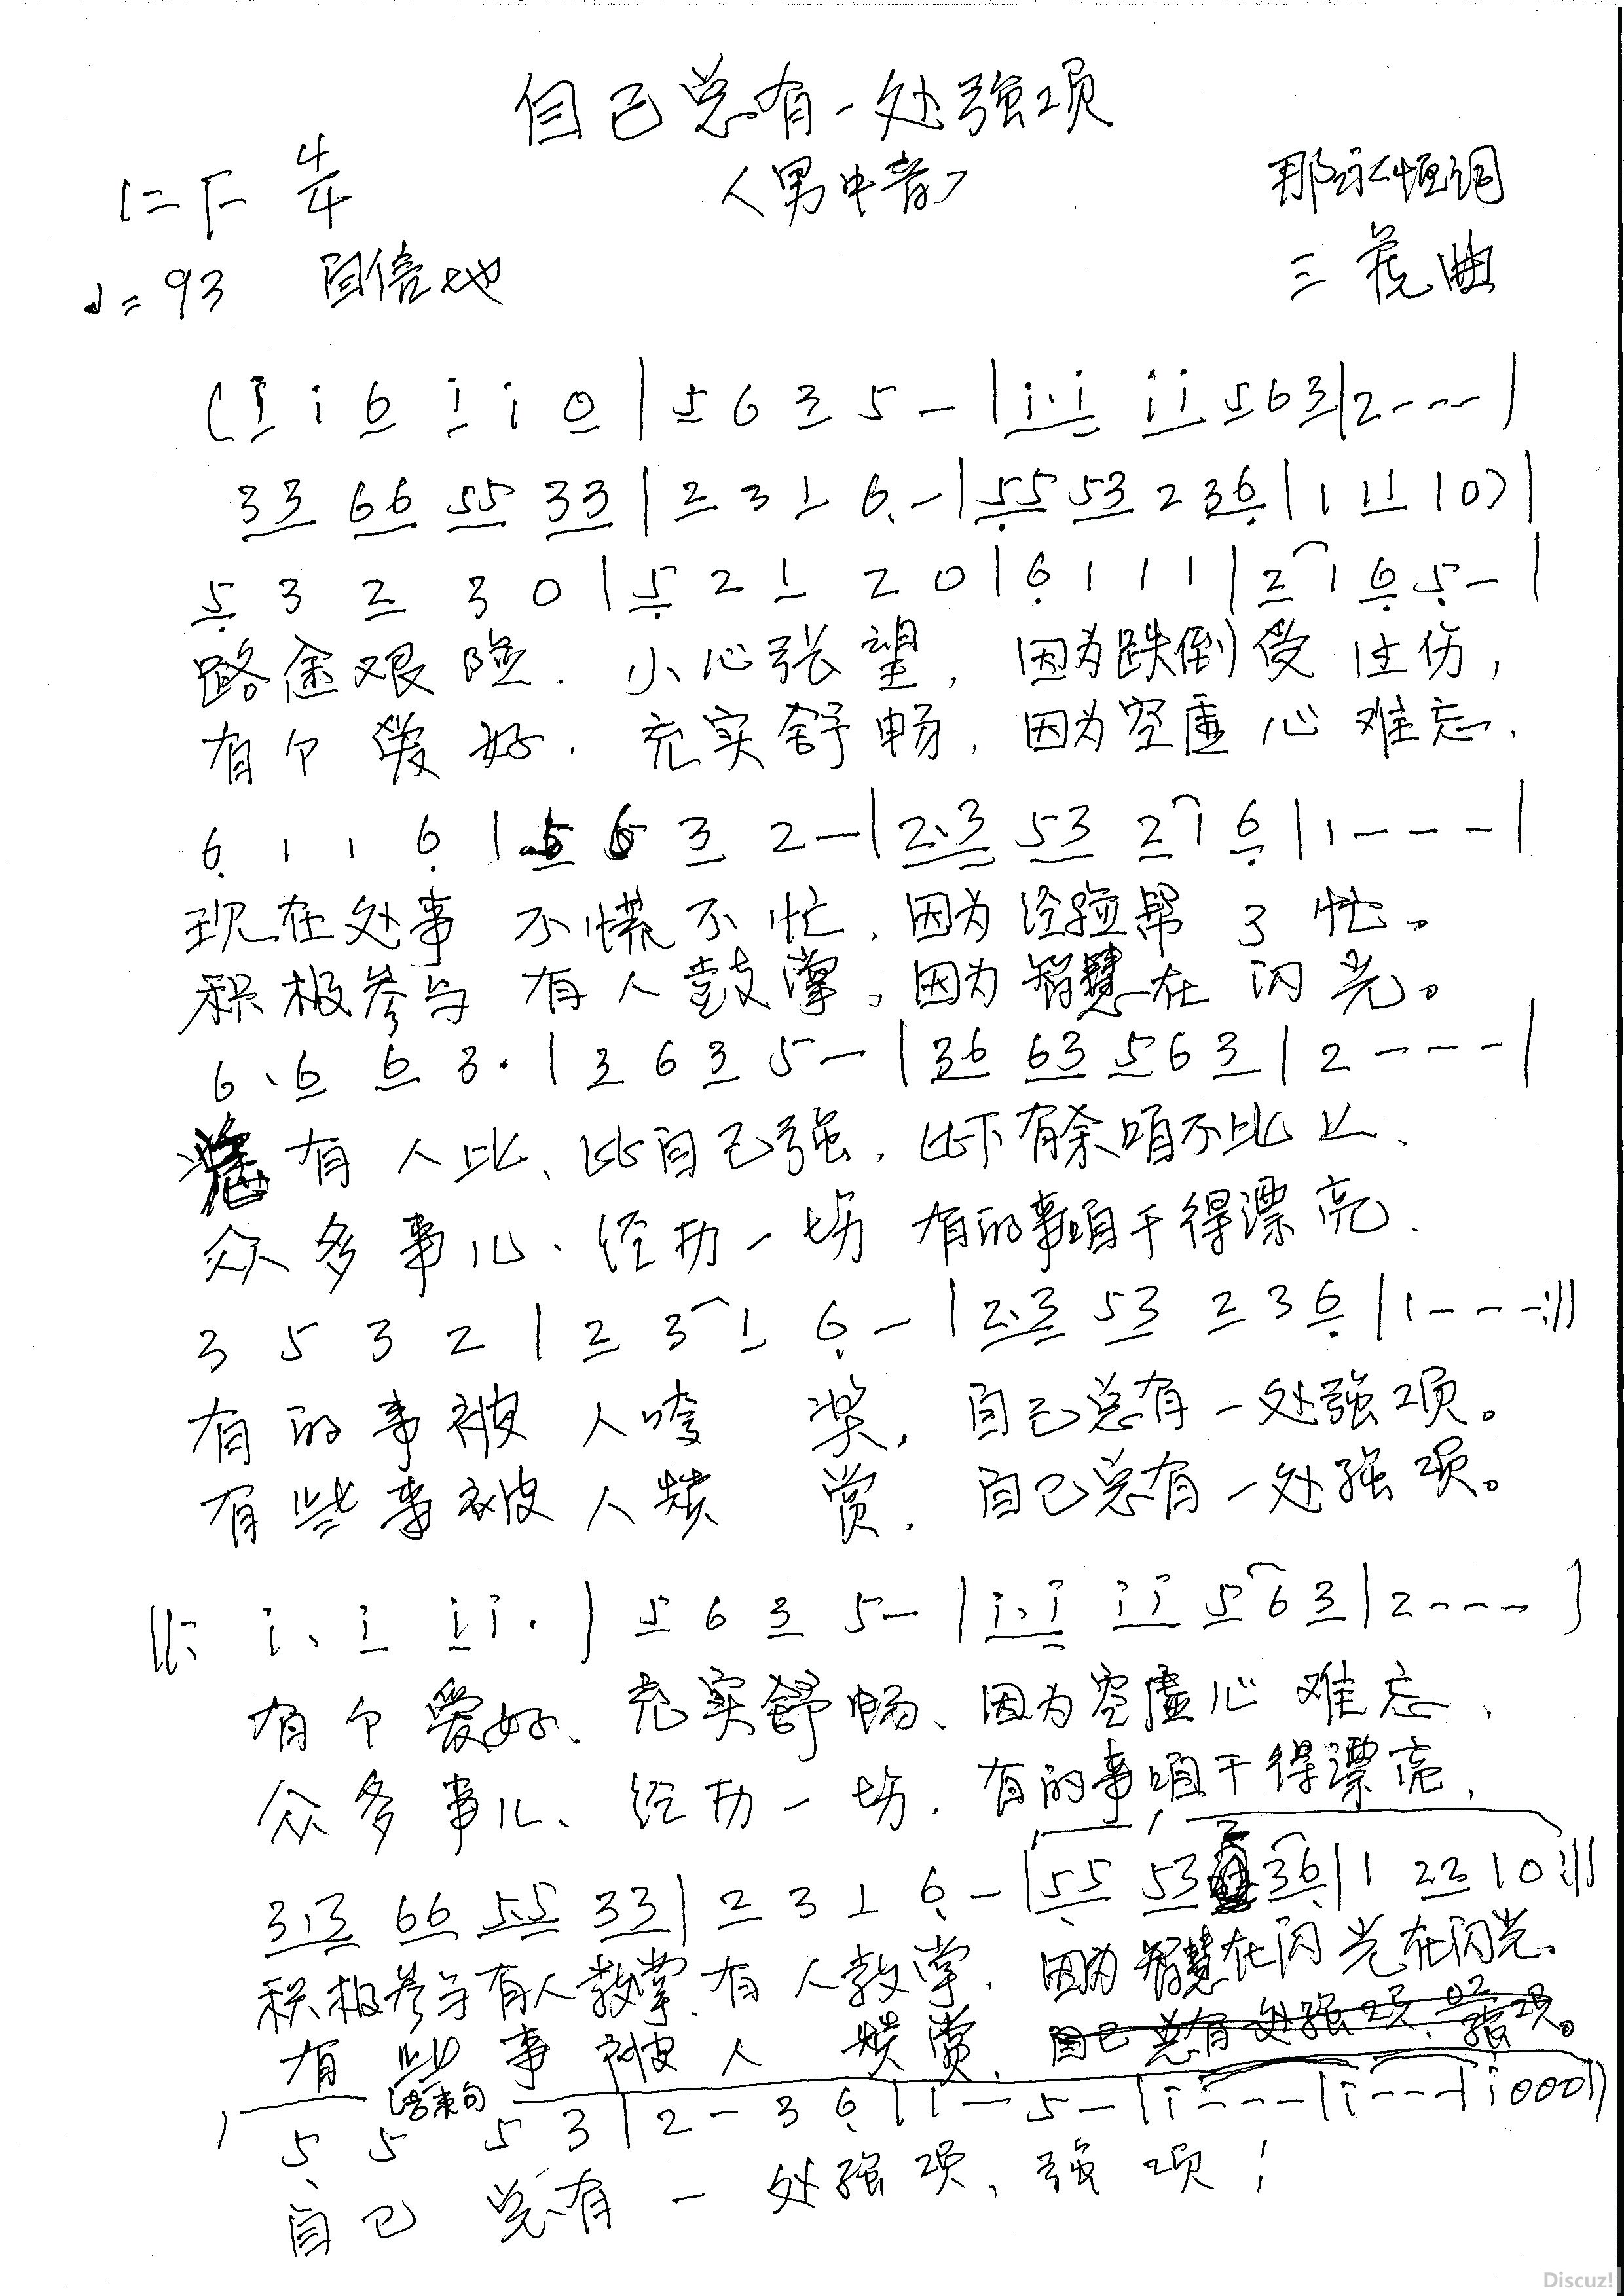 自己总有一处强项
1=F 4/4 〈男中音〉 那永恒词
♩=93 自信地 三荒曲
(i i 6 i i 0 | 5 6 3 5 - | i·i i i 5 6 3 | 2 - - - |
3 3 6 6 5 5 3 3 | 2 3 1 6 - | 5 5 5 3 2 3 6 | 1 1 1 1 0) |
5 3 2 3 0 | 5 2 1 2 0 | 6 1 1 1 | 2 1 6 5 - |
路途艰险. 小心张望, 因为跌倒受过伤,
有个爱好. 充实舒畅, 因为空虚心难忘.
6 1 1 6 | 5 6 3 2 - | 2·3 5 3 2 1 6 | 1 - - - |
现在处事 不慌不忙, 因为经验帮了忙。
积极参与 有人鼓掌, 因为智慧在闪光。
6·6 6 3· | 3 6 3 5 - | 3 6 6 3 5 6 3 | 2 - - - |
有人比、比自己强, 比下有余咱不比上、
众多事儿、经历一场 有的事咱干得漂亮.
3 5 3 2 | 2 3 1 6 - | 2·3 5 3 2 3 6 | 1 - - - :||
有的事被人夸奖, 自己总有一处强项。
有些事被人赞赏, 自己总有一处强项。
||: i·i i i· | 5 6 3 5 - | i·i i i 5 6 3 | 2 - - - |
有个爱好、充实舒畅、因为空虚心难忘、
众多事儿、经历一场. 有的事咱干得漂亮,
3·3 6 6 5·5 3 3 | 2 3 1 6 - | 5 5 5 3 2 3 6 | 1 2 2 1 0 :||
积极参与有人鼓掌, 有人鼓掌, 因为智慧在闪光在闪光。
有些事被人赞赏,
结束句
5 5 5 3 | 2 - 3 6 | 1 - 5 - | i - - - | i - - - | i 0 0 0 ||
自己总有一处强项、强项!
Discuz!